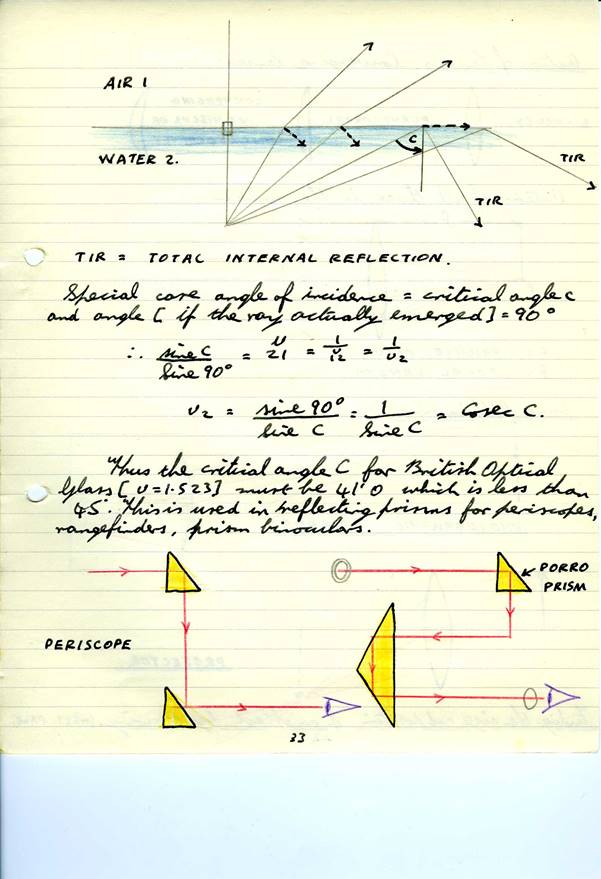 AIR 1
WATER 2.
C
TIR
TIR
TIR = TOTAL INTERNAL REFLECTION.
Special case angle of incidence = critical angle c
and angle [ if the ray actually emerged ] = 90°
∴ sine C / Sine 90° = U 21 = 1 / U 12 = 1 / U2
U2 = sine 90° / Sine C = 1 / Sine C = Cosec C.
Thus the critical angle C for British Optical
Glass [ U = 1.523 ] must be 41°0 which is less than
45°. This is used in reflecting prisms for periscopes,
rangefinders, prism binoculars.
PORRO
PRISM
PERISCOPE
33